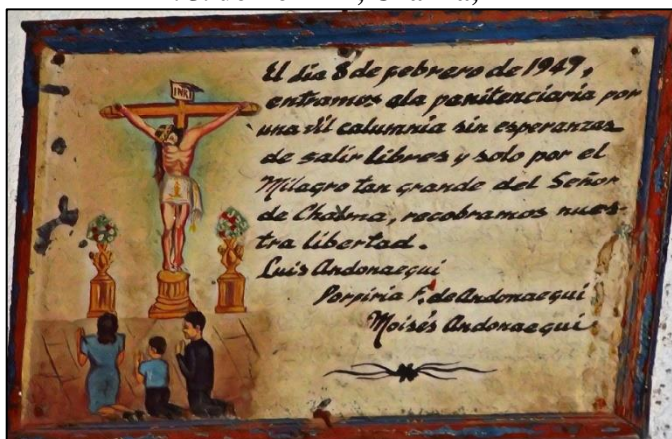 INRI
El día 8 de febrero de 1949,
entramos ala panitenciaria por
una vil calumnia sin esperanzas
de salir libres y solo por el
Milagro tan grande del Señor
de Chalma, recobramos nues-
tra libertad.
Luis Andonaegui
Porpiria F. de Andonaegui
Moisés Andonaegui